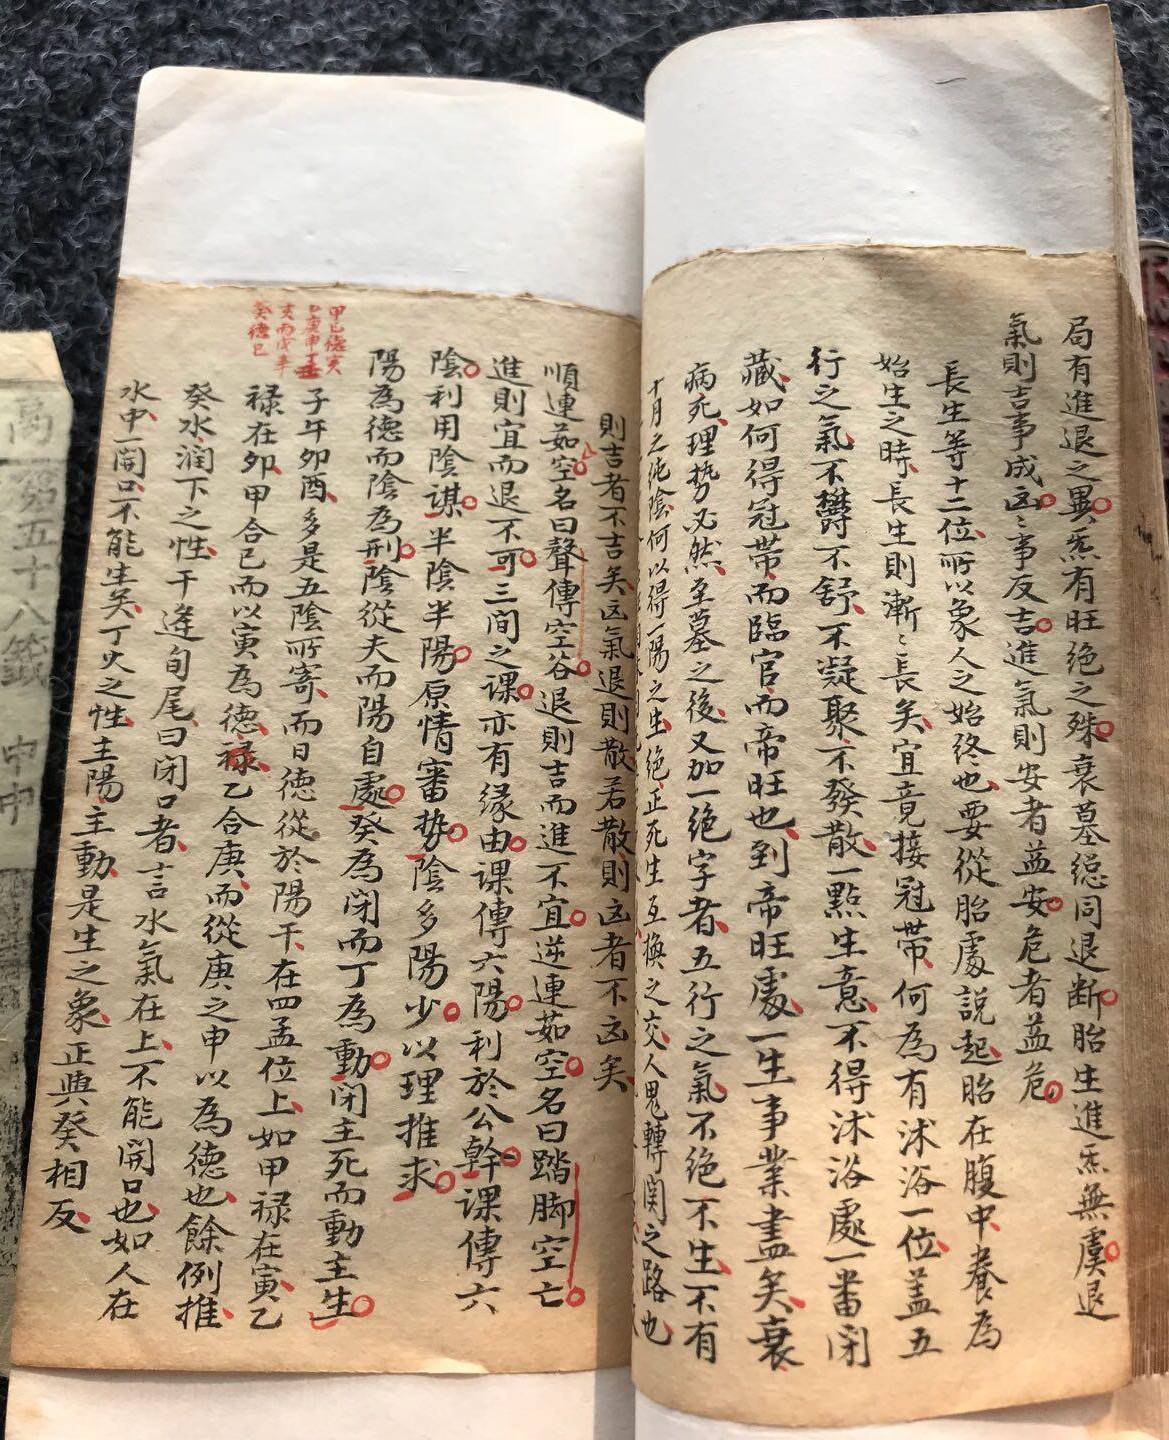 局有進退之異炁有旺絕之殊衰墓緦同退断胎生進炁無虞退
氣則吉事成凶〻事反吉進氣則安者益安危者益危
長生等十二位所以象人之始終也要從胎處説起胎在腹中養為
始生之時長生則漸〻長矣宜竟接冠帶何為有沭浴一位盖五
行之氣不欝不舒不凝聚不發散一點生意不得沭浴處一番闭
藏如何得冠帶而臨官而帝旺也到帝旺處一生事業盡矣衰
病死理势必然至墓之後又加一绝字者五行之氣不绝不生不有
十月之纯陰何以得一陽之生绝正死生互換之交人鬼轉関之路也
則吉者不吉矣凶氣退則散若散則凶者不凶矣
順連茹空名曰聲傳空谷退則吉而進不宜逆連茹空名曰踏脚空亡
進則宜而退不可三间之课亦有缘由课傳六陽利於公幹课傳六
陰利用陰谋半陰半陽原情審势陰多陽少以理推求
陽為德而陰為刑陰從夫而陽自處癸為闭而丁為動闭主死而動主生
甲己德寅
乙庚申丁壬
亥丙戊辛
癸德巳
子午卯酉多是五陰所寄而日德從於陽干在四孟位上如甲禄在寅乙
禄在卯甲合巳而以寅為德禄乙合庚而從庚之申以為德也餘例推
癸水润下之性干逢旬尾曰闭口者言水氣在上不能開口也如人在
水中一開口不能生矣丁火之性主陽主動是生之象正與癸相反
高
第五十八籤
中中